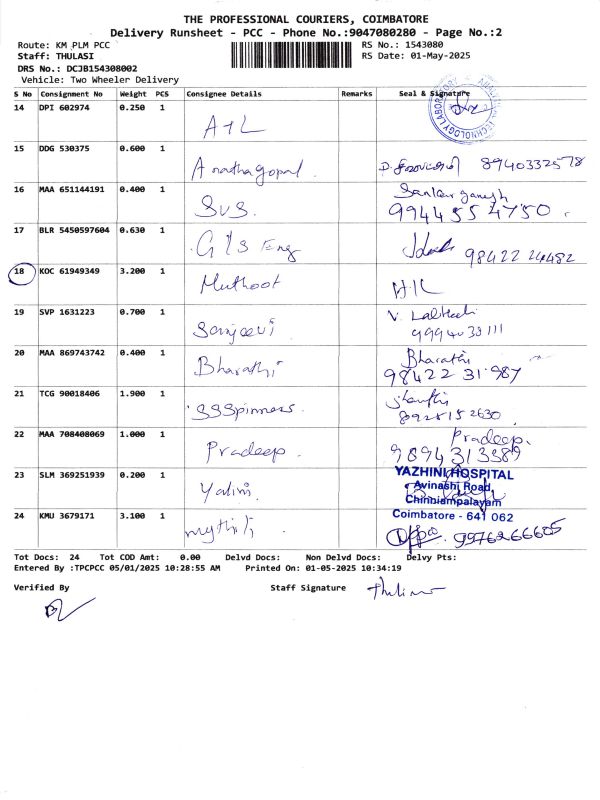 THE PROFESSIONAL COURIERS, COIMBATORE
Delivery Runsheet - PCC - Phone No.:9047080280 - Page No.:2
Route: KM PLM PCC RS No.: 1543080
Staff: THULASI RS Date: 01-May-2025
DRS No.: DCJB154308002
Vehicle: Two Wheeler Delivery
S No Consignment No Weight PCS Consignee Details Remarks Seal & Signature
14 DPI 602974 0.250 1 ATL
15 DDG 530375 0.600 1 Ananthagopal. 8940332578
16 MAA 651144191 0.400 1 SVS. Sankar ganesh
9944554750.
17 BLR 5450597604 0.630 1 Eng 98422 24482
18 KOC 61949349 3.200 1 Muthoot
19 SVP 1631223 0.700 1 Sanjeevi V.
9994033111
20 MAA 869743742 0.400 1 Bharathi Bharathi
98422 31987
21 TCG 90018406 1.900 1 SSSpinners.
8925152630
22 MAA 708408069 1.000 1 Pradeep. Pradeep.
9894313389
23 SLM 369251939 0.200 1 Yalini. YAZHINI HOSPITAL
Avinashi Road,
Chinniampalayam
Coimbatore - 641 062
24 KMU 3679171 3.100 1 mythili 9976266605
Tot Docs: 24 Tot COD Amt: 0.00 Delvd Docs: Non Delvd Docs: Delvy Pts:
Entered By :TPCPCC 05/01/2025 10:28:55 AM Printed On: 01-05-2025 10:34:19
Verified By Staff Signature